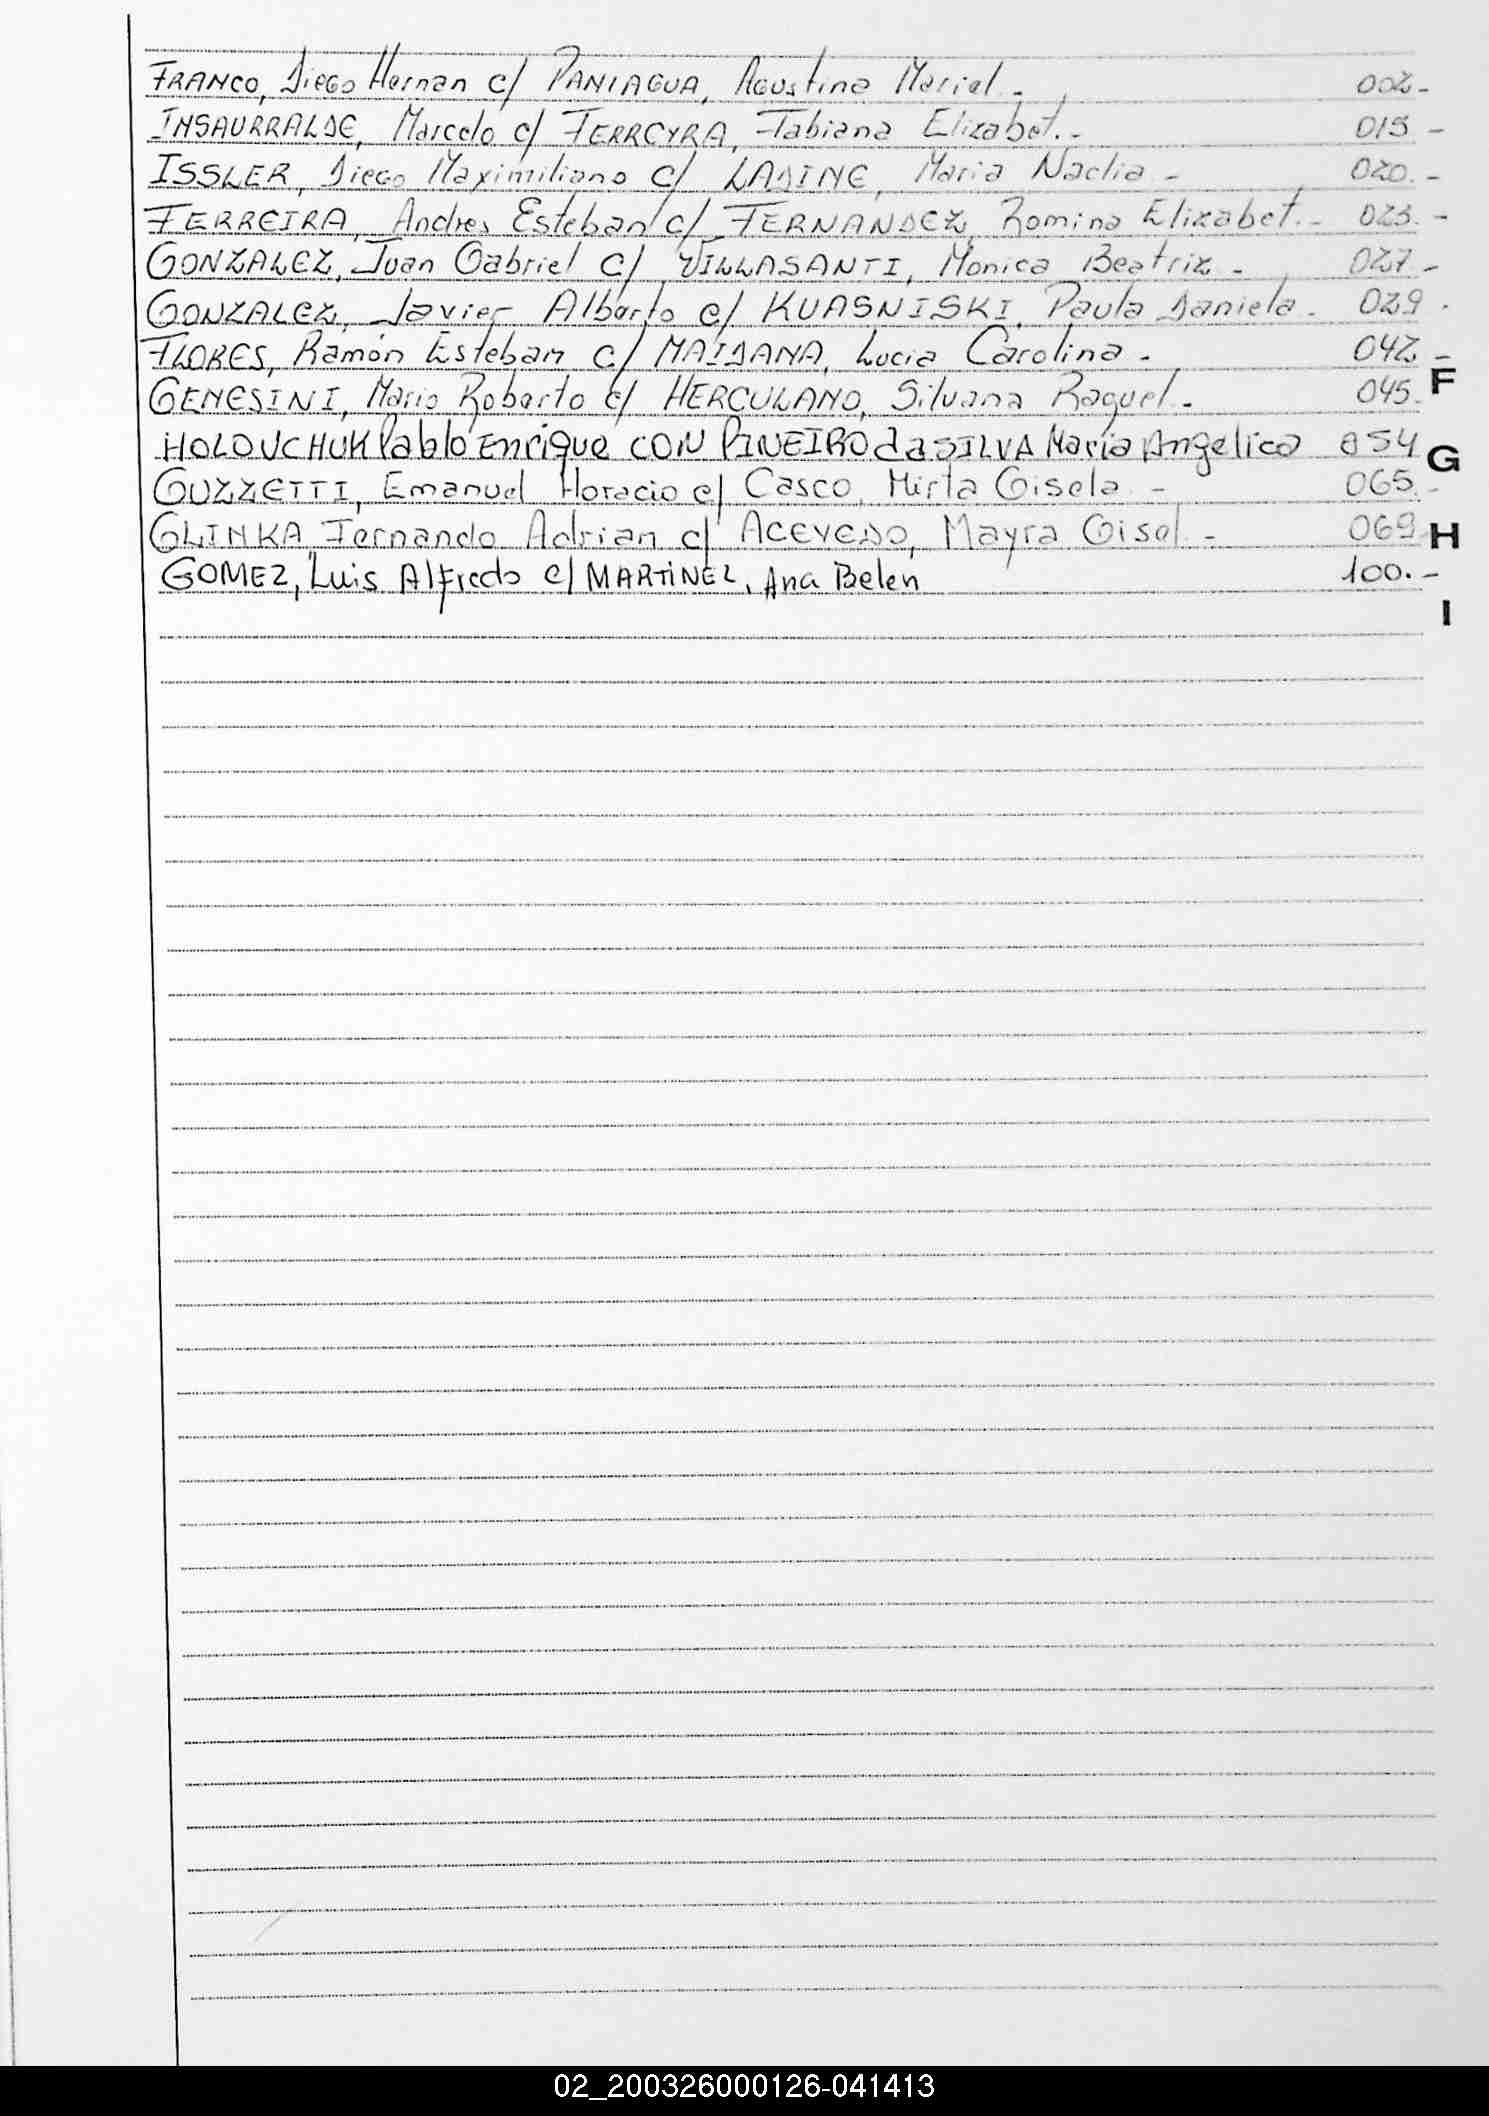 FRANCO, Diego Hernan c/ PANIAGUA, Agustina Mariel.- 002.-
INSAURRALDE, Marcelo c/ FERREYRA, Fabiana Elizabet.- 015.-
ISSLER, Diego Maximiliano c/ LADINE, Maria Nadia.- 020.-
FERREIRA, Andres Esteban c/ FERNANDEZ, Romina Elizabet.- 023.-
GONZALEZ, Juan Gabriel c/ VILLASANTI, Monica Beatriz.- 027.-
GONZALEZ, Javier Alberto c/ KUASNISKI, Paula Daniela. 029.
FLORES, Ramón Esteban c/ MAIDANA, Lucia Carolina.- 042.-
GENESINI, Mario Roberto c/ HERCULANO, Silvana Raquel.- 045.
F
HOLOVCHUK Pablo Enrique CON PINEIRO da SILVA Maria Angelica 054
G
GUZZETTI, Emanuel Horacio c/ Casco, Mirta Gisela.- 065.-
GLINKA, Fernando Adrian c/ ACEVEDO, Mayra Gisel.- 069
H
GOMEZ, Luis Alfredo c/ MARTiNEZ, Ana Belen 100.-
I
02_200326000126-041413